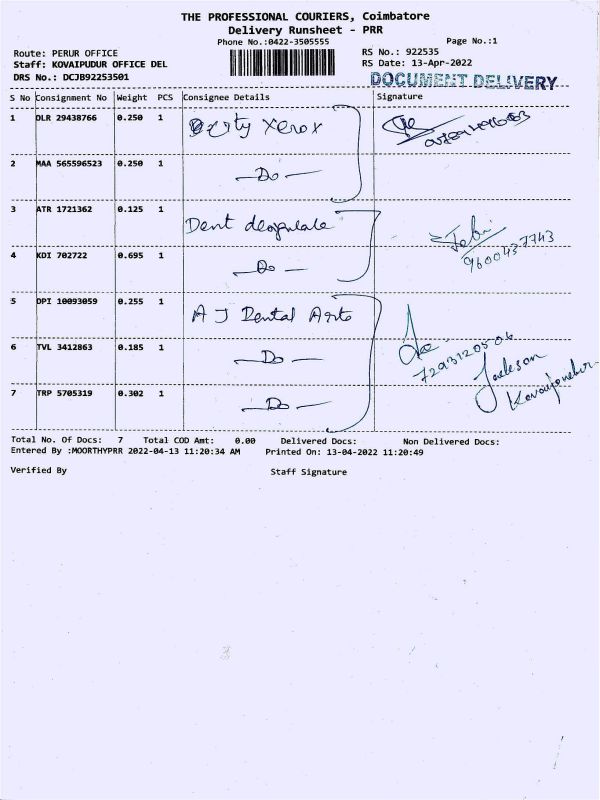 THE PROFESSIONAL COURIERS, Coimbatore
Delivery Runsheet - PRR
Phone No.:0422-3505555
Page No.:1
Route: PERUR OFFICE
RS No.: 922535
Staff: KOVAIPUDUR OFFICE DEL
RS Date: 13-Apr-2022
DRS No.: DCJB92253501
DOCUMENT DELIVERY
S No Consignment No Weight PCS Consignee Details Signature
1 DLR 29438766 0.250 1 Xerox
2 MAA 565596523 0.250 1 -Do-
3 ATR 1721362 0.125 1 Dent
4 KDI 702722 0.695 1 -Do-
9600437743
5 DPI 10093059 0.255 1 A J Dental Arts
6 TVL 3412863 0.185 1 -Do-
7293120506
Jackson
7 TRP 5705319 0.302 1 -Do-
Total No. Of Docs: 7 Total COD Amt: 0.00 Delivered Docs: Non Delivered Docs:
Entered By :MOORTHYPRR 2022-04-13 11:20:34 AM Printed On: 13-04-2022 11:20:49
Verified By Staff Signature